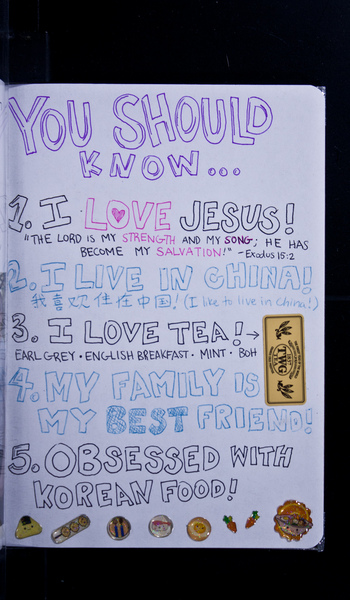 YOU SHOULD
KNOW...
1. I LOVE JESUS!
"THE LORD IS MY STRENGTH AND MY SONG; HE HAS
BECOME MY SALVATION!" -Exodus 15:2
2. I LIVE IN CHINA!
我喜欢住在中国! (I like to live in China!)
3. I LOVE TEA! →
TWG
TEA
EARL GREY · ENGLISH BREAKFAST · MINT · BOH
4. MY FAMILY IS
MY BEST FRIEND!
5. OBSESSED WITH
KOREAN FOOD!